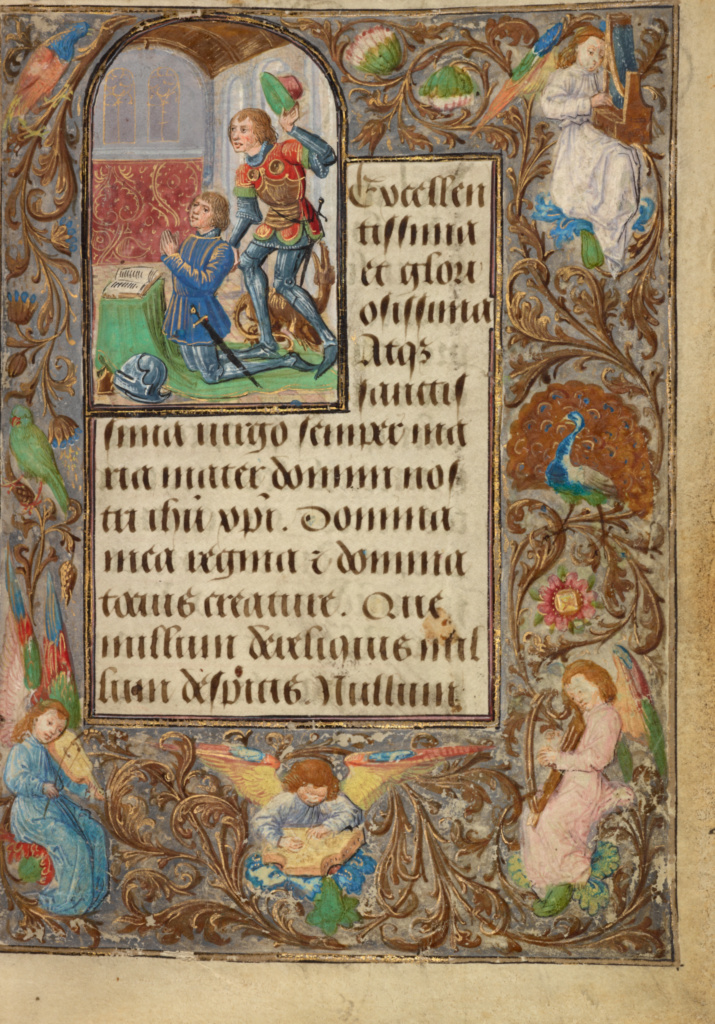 Excellen
tissima
et glori
osissima
Atqʒ
sanctis
sima uirgo semper ma
ria mater domini nos
tri ihũ xp̃i. Domina
mea regina ⁊ domina
tocius creature. Que
nullum derelinquis nul
lum despicis. Nullum